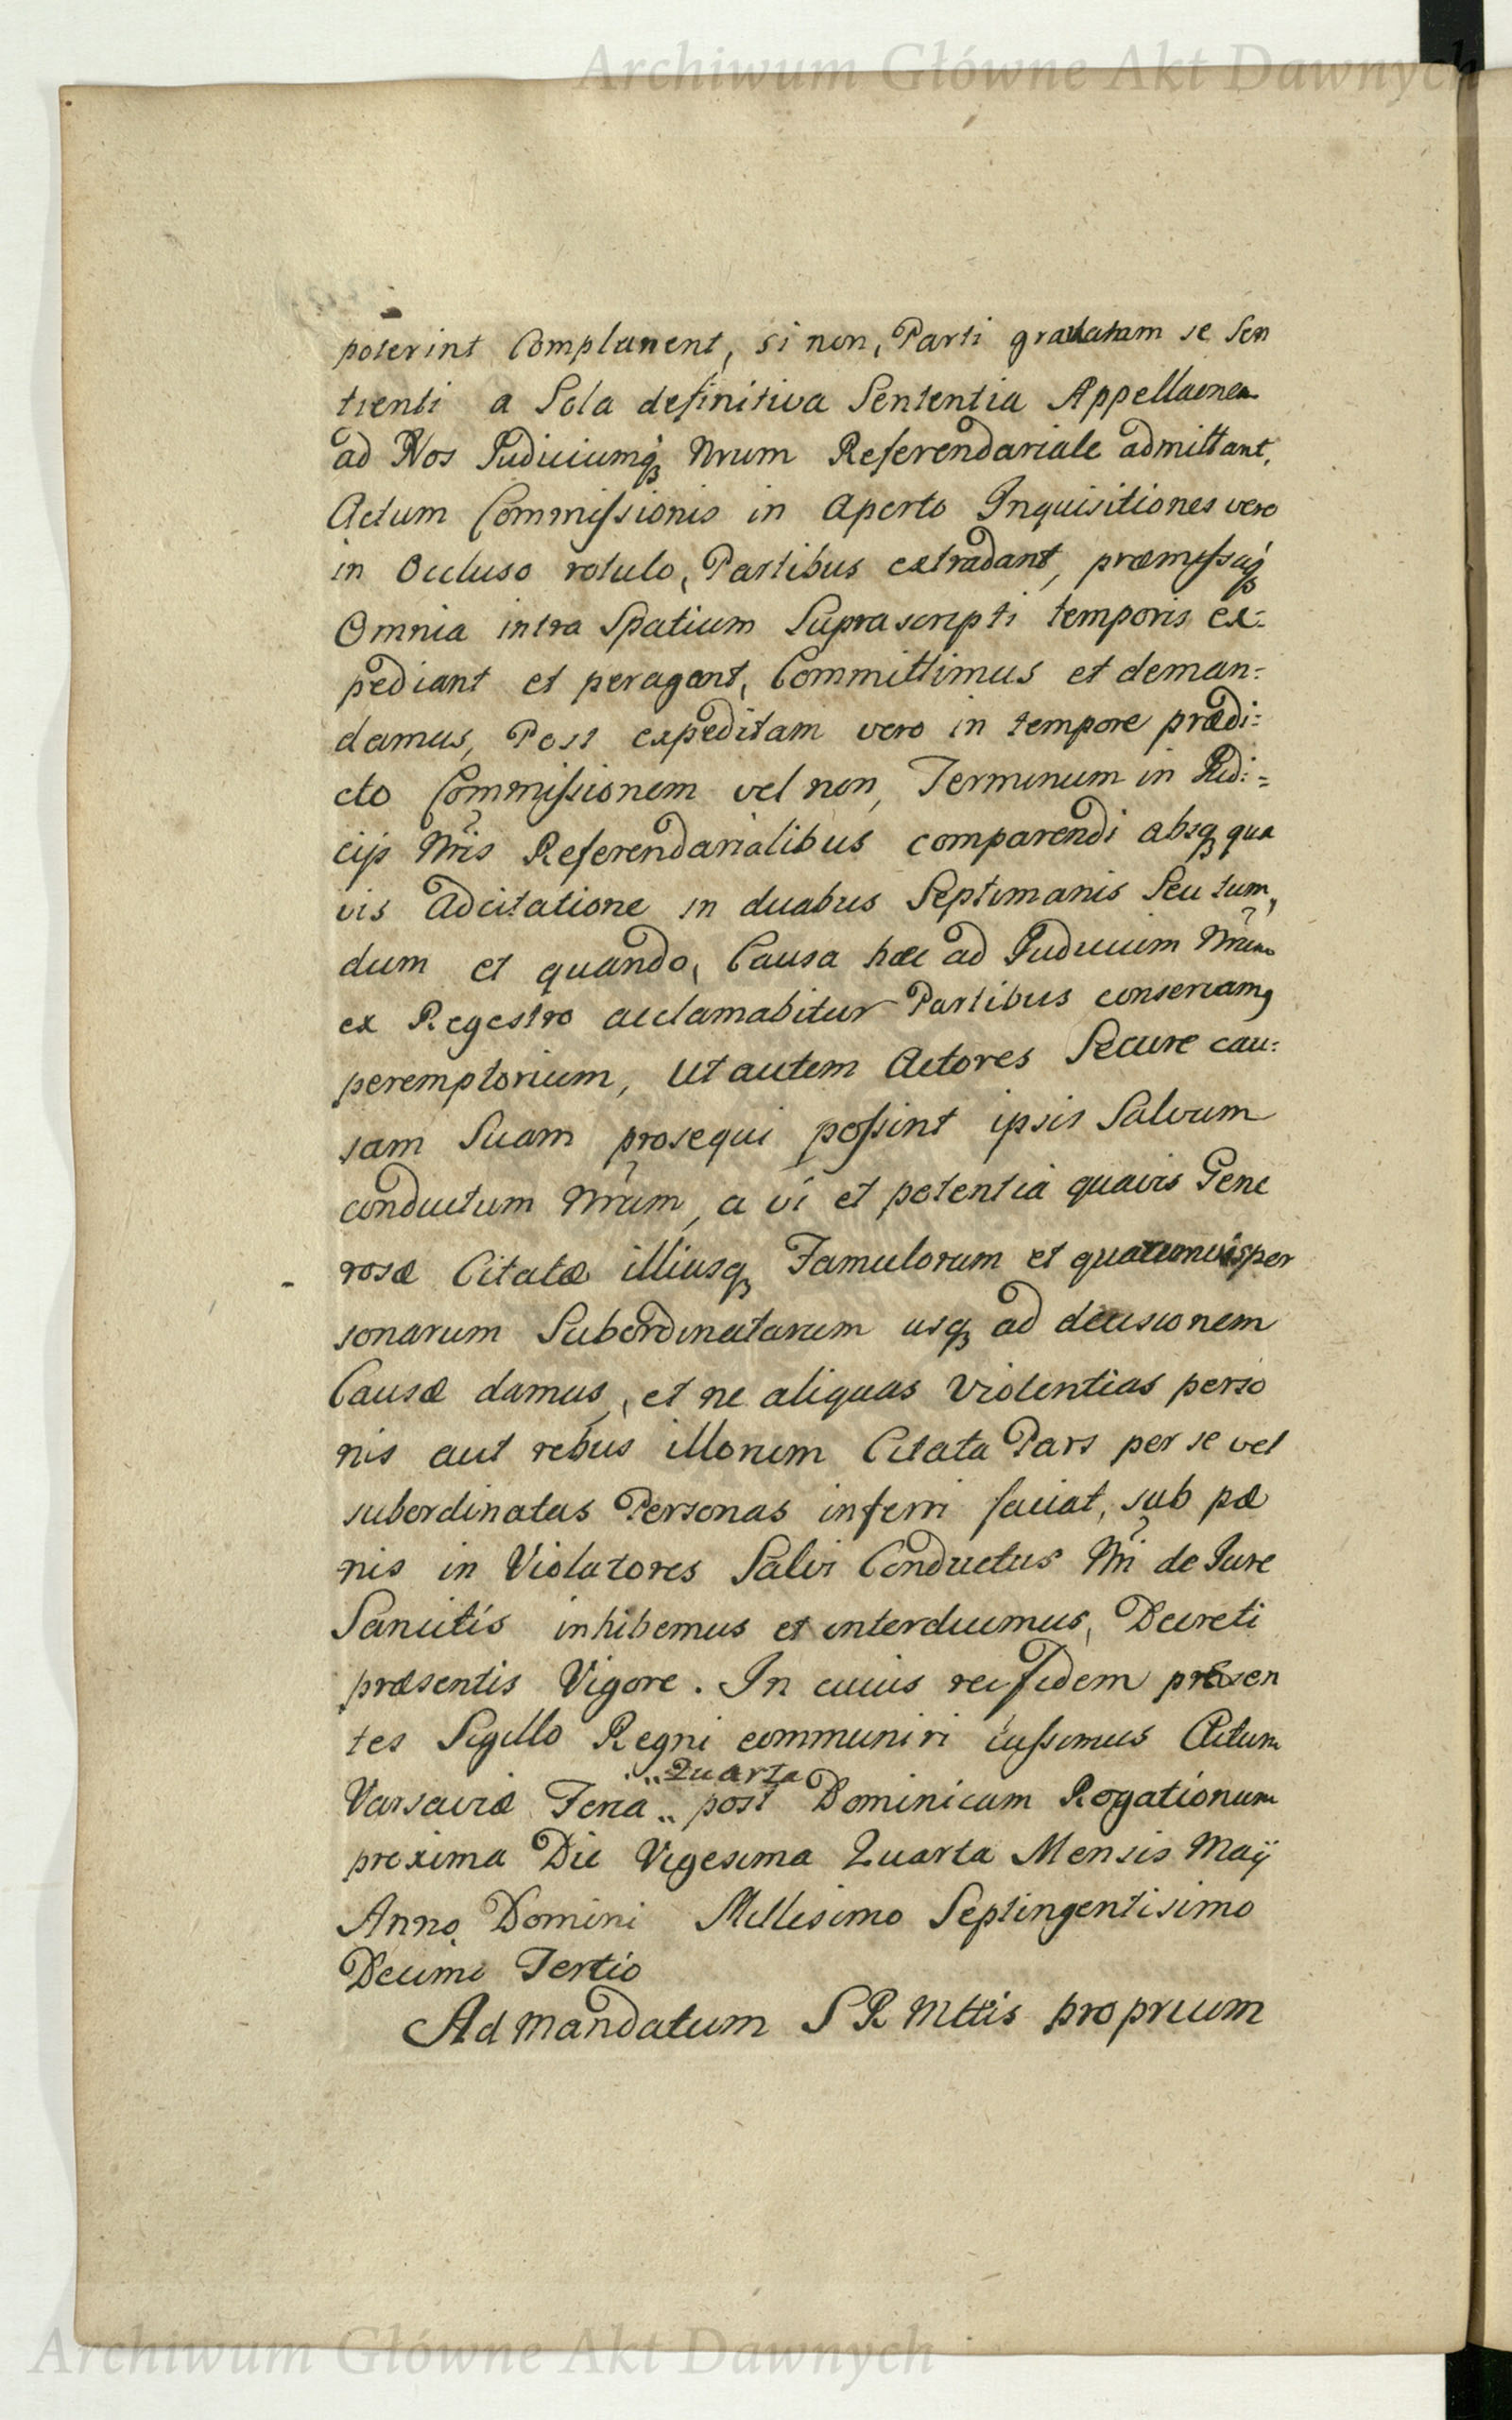 Archiwum Główne Akt Dawnych
poterint Complanent, si non, Parti gravatam se Sen
tienti a Sola definitiva Sententia Appellaonem
ad Nos Judiciumq, Nrum Referendariale admittant,
Actum Commissionis in Aperto Inquisitiones vero
in Occluso rotulo, Partibus extradant, præmissaq,
Omnia intra Spatium Suprascripti temporis ex:
pediant et peragant, Committimus et deman:
damus, Post expeditam vero in tempore prædi:
cto Commissionem vel non, Terminum in Judi:
cijs Nris Referendarialibus comparendi absq, qua
vis Adcitatione in duabus Septimanis Seu tum,
dum et quando, Causa hæc ad Judicium Nrum
ex Regestro acclamabitur Partibus conservamq
peremptorium, Ut autem Actores Secure cau:
sam Suam prosequi possint ipsis Salvum
conductum Nrum, a vi et potentia quavis Gene
rosæ Citatæ illiusq, Famulorum et quarumvis per
sonarum Subordinatarum usq, ad decisionem
Causæ damus, et ne aliquas Violentias perso
nis aut rebus illorum Citata Pars per se vel
subordinatas Personas inferri faciat, sub pæ
nis in Violatores Salvi Conductus Nri de Jure
Sancitis inhibemus et interdicimus, Decreti
præsentis Vigore. In cuius rei fidem præsen
tes Sigillo Regni communiri iussimus Actum
Quarta
Varsaviæ Feria post Dominicam Rogationum
proxima Die Vigesima Quarta Mensis Maij
Anno Domini Millesimo Septingentisimo
Decimo Tertio
Ad Mandatum S R Mttis proprium
Archiwum Główne Akt Dawnych